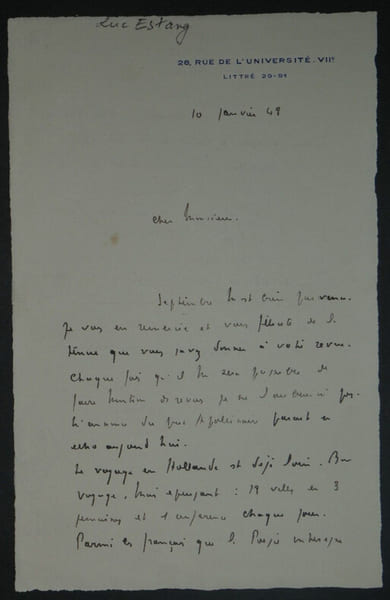 Luc Estang
28, RUE DE L'UNIVERSITÉ. VIIᵉ
LITTRÉ 29-91
10 janvier 49
cher Monsieur.
Septembre m'est bien parvenu.
Je vous en remercie et vous félicite de la
tenue que vous savez donner à votre revue.
Chaque fois qu'il me sera possible de
faire mention de revues je ne l'oublierai pas.
du prix Apollinaire paraît en
écho aujourd'hui.
Le voyage en Hollande est déjà loin. Bon
voyage, mais épuisant : 19 villes en 3
semaines et 1 conférence chaque jour.
Parmi les français que la Poésie intéresse